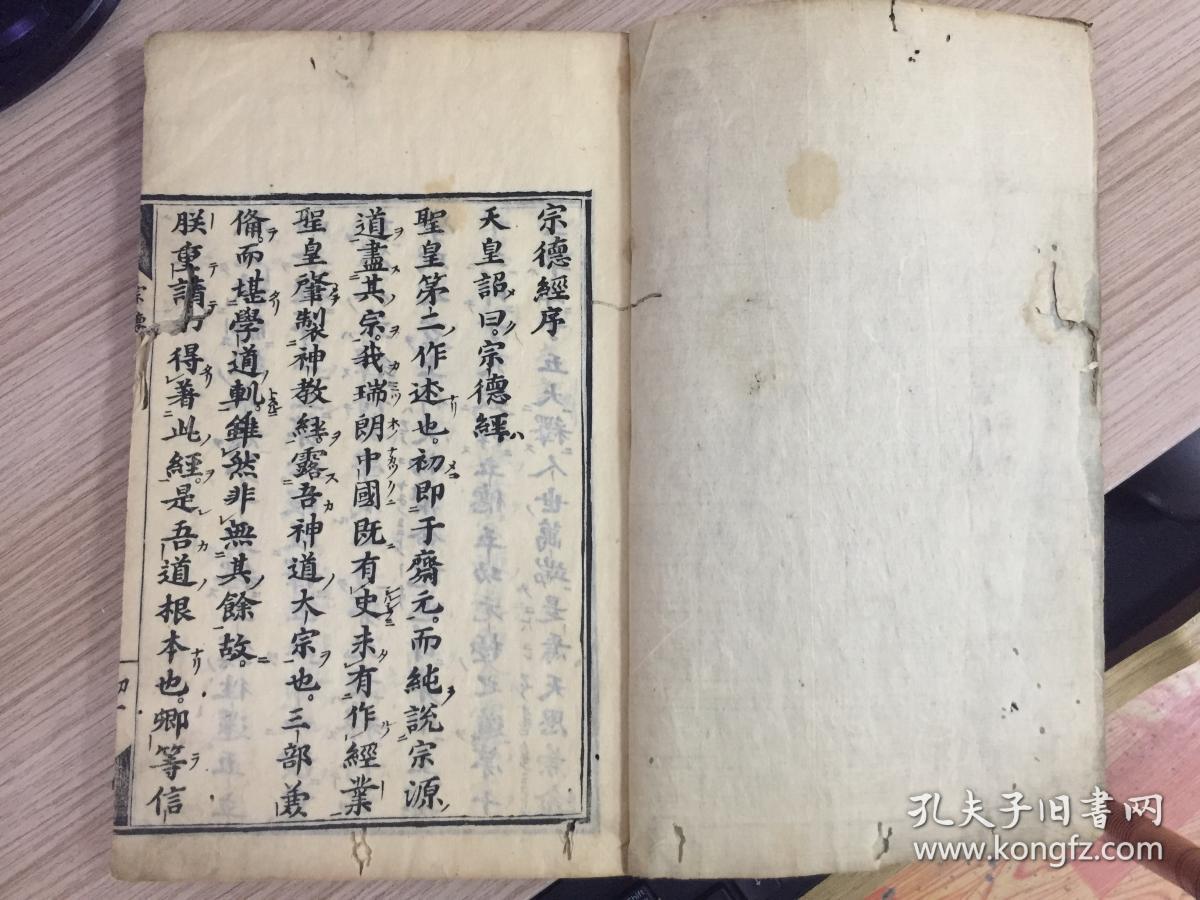 宗德經序
天皇詔曰。宗德經
聖皇第二作述也。初即于齋元。而純說宗源
道盡其宗。我瑞朗中國既有史未有作經業
聖皇肇製神教經。露吾神道大宗也。三部義
備。而堪學道軌。雖然非無其餘故。
朕重請乃得著此經。是吾道根本也。卿等信
孔夫子旧书网
www.kongfz.com